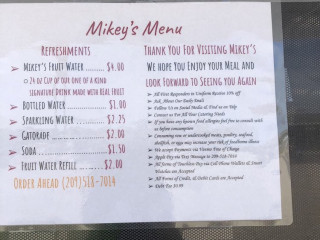 Mikey's Menu
Refreshments
Mikey's Fruit Water ........ $4.00
24 oz Cup of our one of a kind
signature Drink made with real fruit
Bottled Water ............... $1.00
Sparkling Water ............. $2.25
Gatorade ................... $2.00
Soda ....................... $1.50
Fruit Water Refill .......... $2.00
Order Ahead (209)518-7014
Thank You For Visiting Mikey's
We hope You Enjoy your Meal and
Look Forward to Seeing you Again
All First Responders in Uniform Receive 10% off
Ask About Our Daily Meals
Follow Us on Social Media & Find us on Yelp
Contact us For All Your Catering Needs
If you have any known food allergies feel free to consult with
us before consumption
Consuming raw or undercooked meats, poultry, seafood,
shellfish, or eggs may increase your risk of foodborne illness
We accept Payments via Venmo Free of Charge
Apple Pay via Text Message to 209-518-7014
All Forms of Touchless Pay via Cell Phone Wallets & Smart
Watches are Accepted
All Forms of Credit, & Debit Cards are Accepted
Debit Fee $0.99